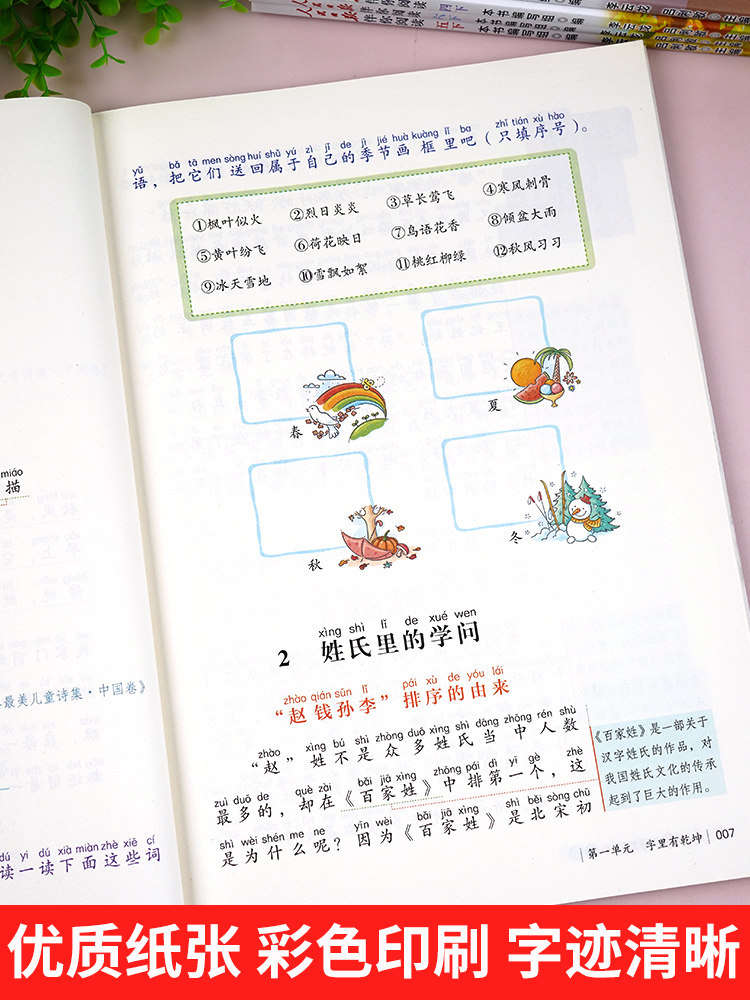 伴你阅读 四下
本书编写组 编
伴你阅读 五下
本书编写组 编
miáo
描
最美儿童诗集·中国卷》
dú yi dú xià miàn zhè xiē cí
读一读下面这些词
yǔ bǎ tā men sòng huí shǔ yú zì jǐ de jì jié huà kuàng lǐ ba zhǐ tián xù hào
语，把它们送回属于自己的季节画框里吧（只填序号）。
①枫叶似火 ②烈日炎炎 ③草长莺飞 ④寒风刺骨
⑤黄叶纷飞 ⑥荷花映日 ⑦鸟语花香 ⑧倾盆大雨
⑨冰天雪地 ⑩雪飘如絮 ⑪桃红柳绿 ⑫秋风习习
春
夏
秋
冬
xìng shì lǐ de xué wen
2 姓氏里的学问
zhào qián sūn lǐ pái xù de yóu lái
“赵钱孙李”排序的由来
zhào xìng bú shì zhòng duō xìng shì dāng zhōng rén shù
“赵”姓不是众多姓氏当中人数
zuì duō de què zài bǎi jiā xìng zhōng pái dì yī gè zhè
最多的，却在《百家姓》中排第一个，这
shì wèi shén me ne yīn wèi bǎi jiā xìng shì běi sòng chū
是为什么呢？因为《百家姓》是北宋初
《百家姓》是一部关于
汉字姓氏的作品，对
我国姓氏文化的传承
起到了巨大的作用。
第一单元 字里有乾坤 007
优质纸张 彩色印刷 字迹清晰